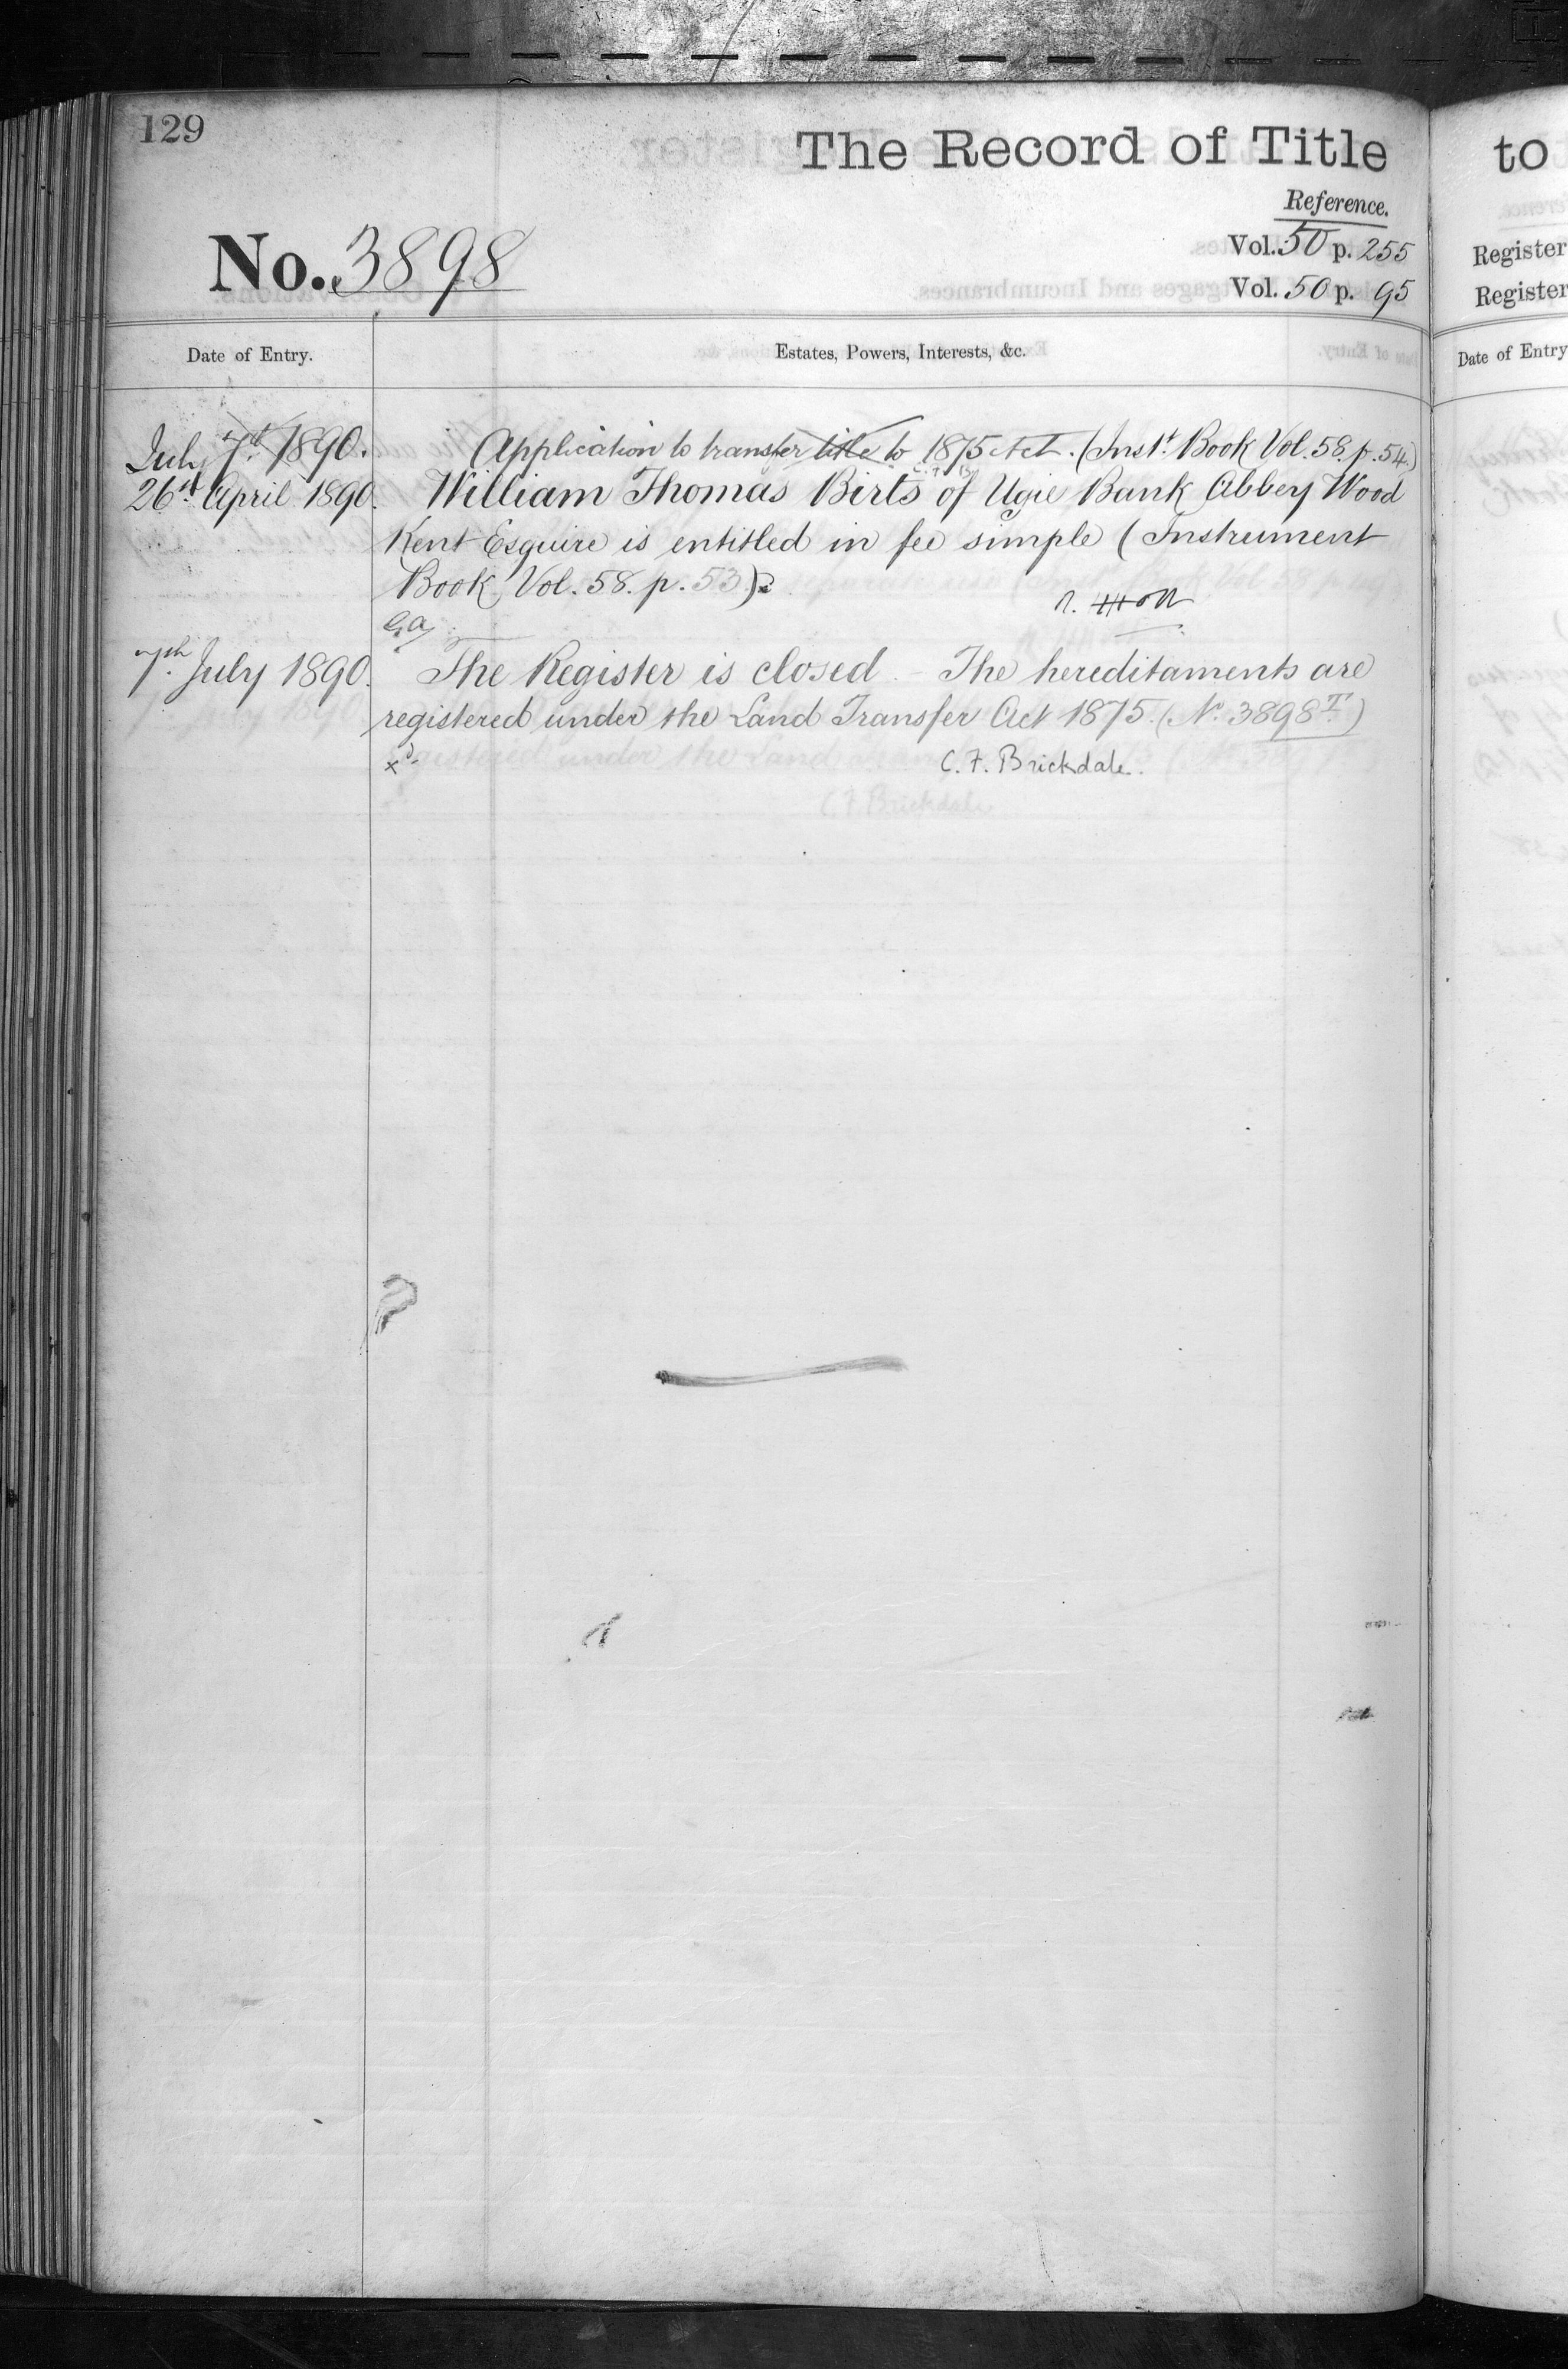 129
The Record of Title
to
Reference.
No. 3898
Vol. 50 p. 255
Register
Vol. 50 p. 95
Register
Date of Entry.
Estates, Powers, Interests, &c.
Date of Entry
July 7th 1890. Application to transfer title to 1875 Act. (Inst. Book Vol. 58. p. 54.)
26th April 1890. William Thomas Birts of Ugie Bank Abbey Wood
Kent Esquire is entitled in fee simple (Instrument
Book Vol. 58. p. 53)
7th July 1890. The Register is closed - The hereditaments are
registered under the Land Transfer Act 1875. (No. 3898T)
C. F. Brickdale.